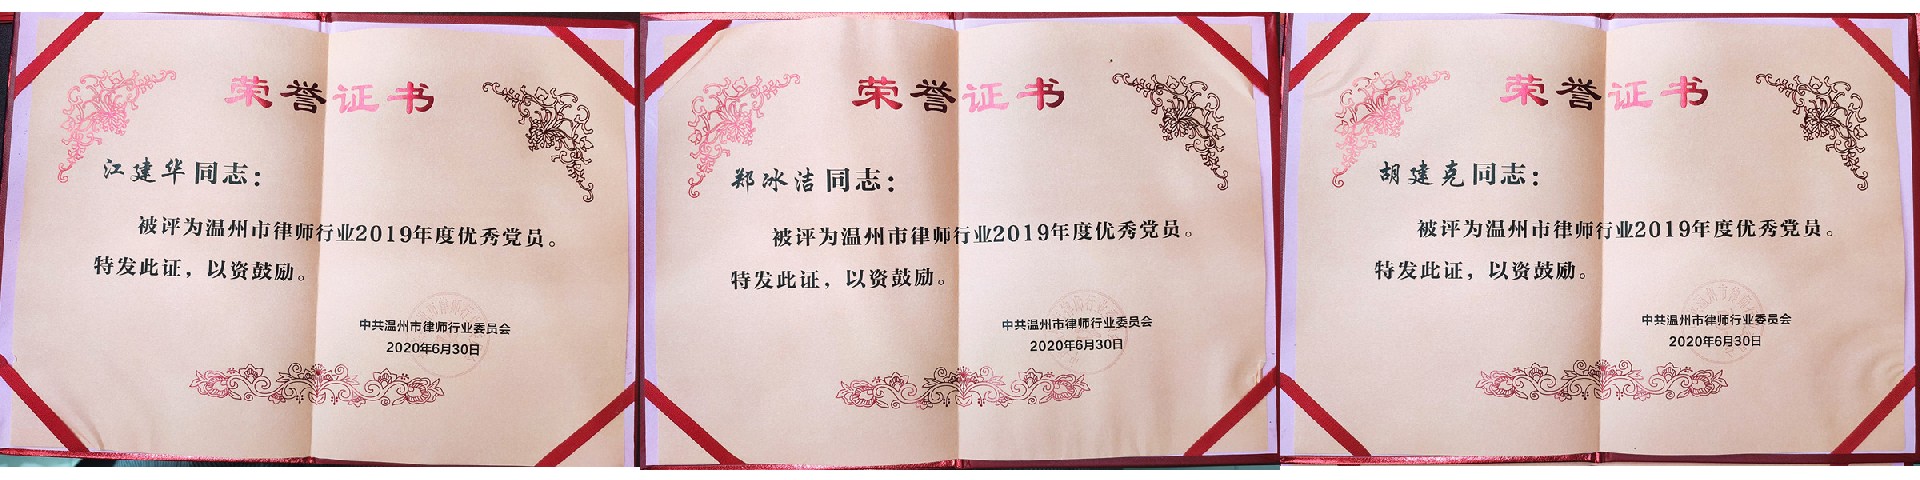 荣誉证书
江建华同志：
被评为温州市律师行业2019年度优秀党员。
特发此证，以资鼓励。
中共温州市律师行业委员会
2020年6月30日
荣誉证书
郑冰洁同志：
被评为温州市律师行业2019年度优秀党员。
特发此证，以资鼓励。
中共温州市律师行业委员会
2020年6月30日
荣誉证书
胡建克同志：
被评为温州市律师行业2019年度优秀党员。
特发此证，以资鼓励。
中共温州市律师行业委员会
2020年6月30日